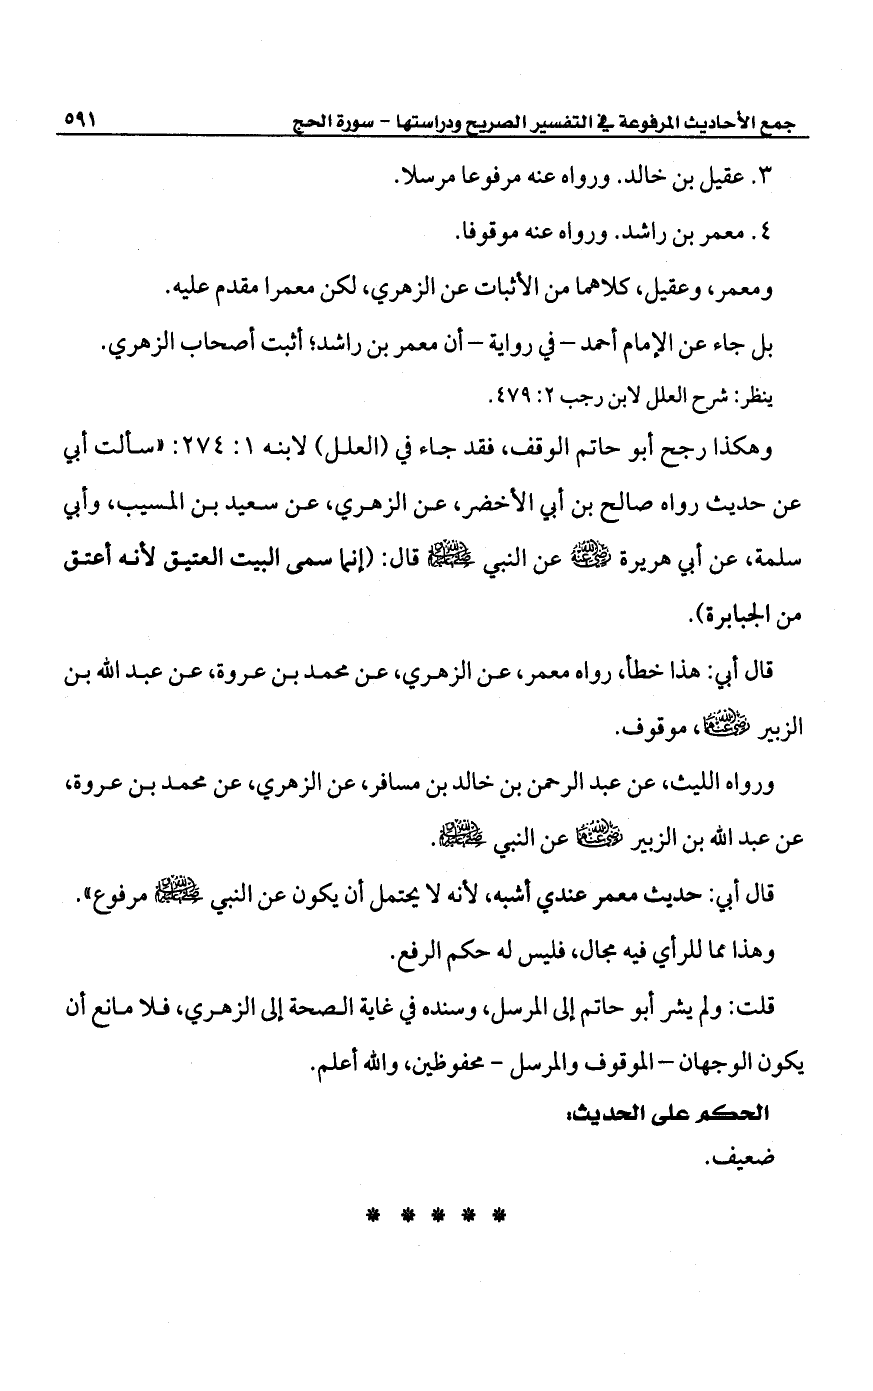 جمع الأحاديث المرفوعة في التفسير الصريح ودراستها - سورة الحج ٥٩١
٣. عقيل بن خالد. ورواه عنه مرفوعا مرسلا.
٤. معمر بن راشد. ورواه عنه موقوفا.
ومعمر، وعقيل، كلاهما من الأثبات عن الزهري، لكن معمرا مقدم عليه.
بل جاء عن الإمام أحمد – في رواية – أن معمر بن راشد؛ أثبت أصحاب الزهري.
ينظر: شرح العلل لابن رجب ٢: ٤٧٩.
وهكذا رجح أبو حاتم الوقف، فقد جاء في (العلل) لابنه ١: ٢٧٤: «سألت أبي
عن حديث رواه صالح بن أبي الأخضر، عن الزهري، عن سعيد بن المسيب، وأبي
سلمة، عن أبي هريرة رضي الله عنه عن النبي ﷺ قال: (إنما سمى البيت العتيق لأنه أعتق
من الجبابرة).
قال أبي: هذا خطأ، رواه معمر، عن الزهري، عن محمد بن عروة، عن عبد الله بن
الزبير رضي الله عنهما، موقوف.
ورواه الليث، عن عبد الرحمن بن خالد بن مسافر، عن الزهري، عن محمد بن عروة،
عن عبد الله بن الزبير رضي الله عنهما عن النبي ﷺ.
قال أبي: حديث معمر عندي أشبه، لأنه لا يحتمل أن يكون عن النبي ﷺ مرفوع».
وهذا مما للرأي فيه مجال، فليس له حكم الرفع.
قلت: ولم يشر أبو حاتم إلى المرسل، وسنده في غاية الصحة إلى الزهري، فلا مانع أن
يكون الوجهان – الموقوف والمرسل – محفوظين، والله أعلم.
الحكم على الحديث:
ضعيف.
* * * * *